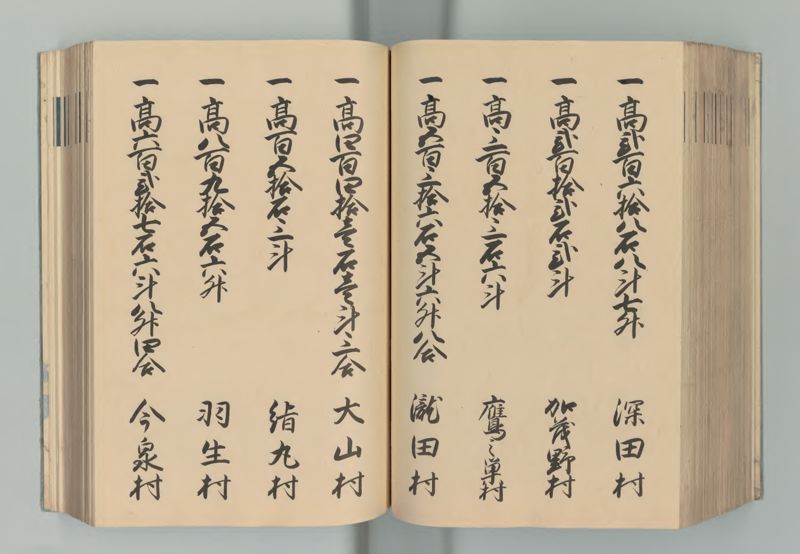 一 高弐百六拾八石八斗七升 深田村
一 高弐百拾弐石弐斗 加茂野村
一 高三百五拾三石六斗 鷹之巣村
一 高五百三拾六石五斗六升八合 瀧田村
一 高四百四拾壱石壱斗三合 大山村
一 高百五拾石三斗 絈九村
一 高八百九拾五石六升 羽生村
一 高六百弐拾七石六斗八升四合 今泉村